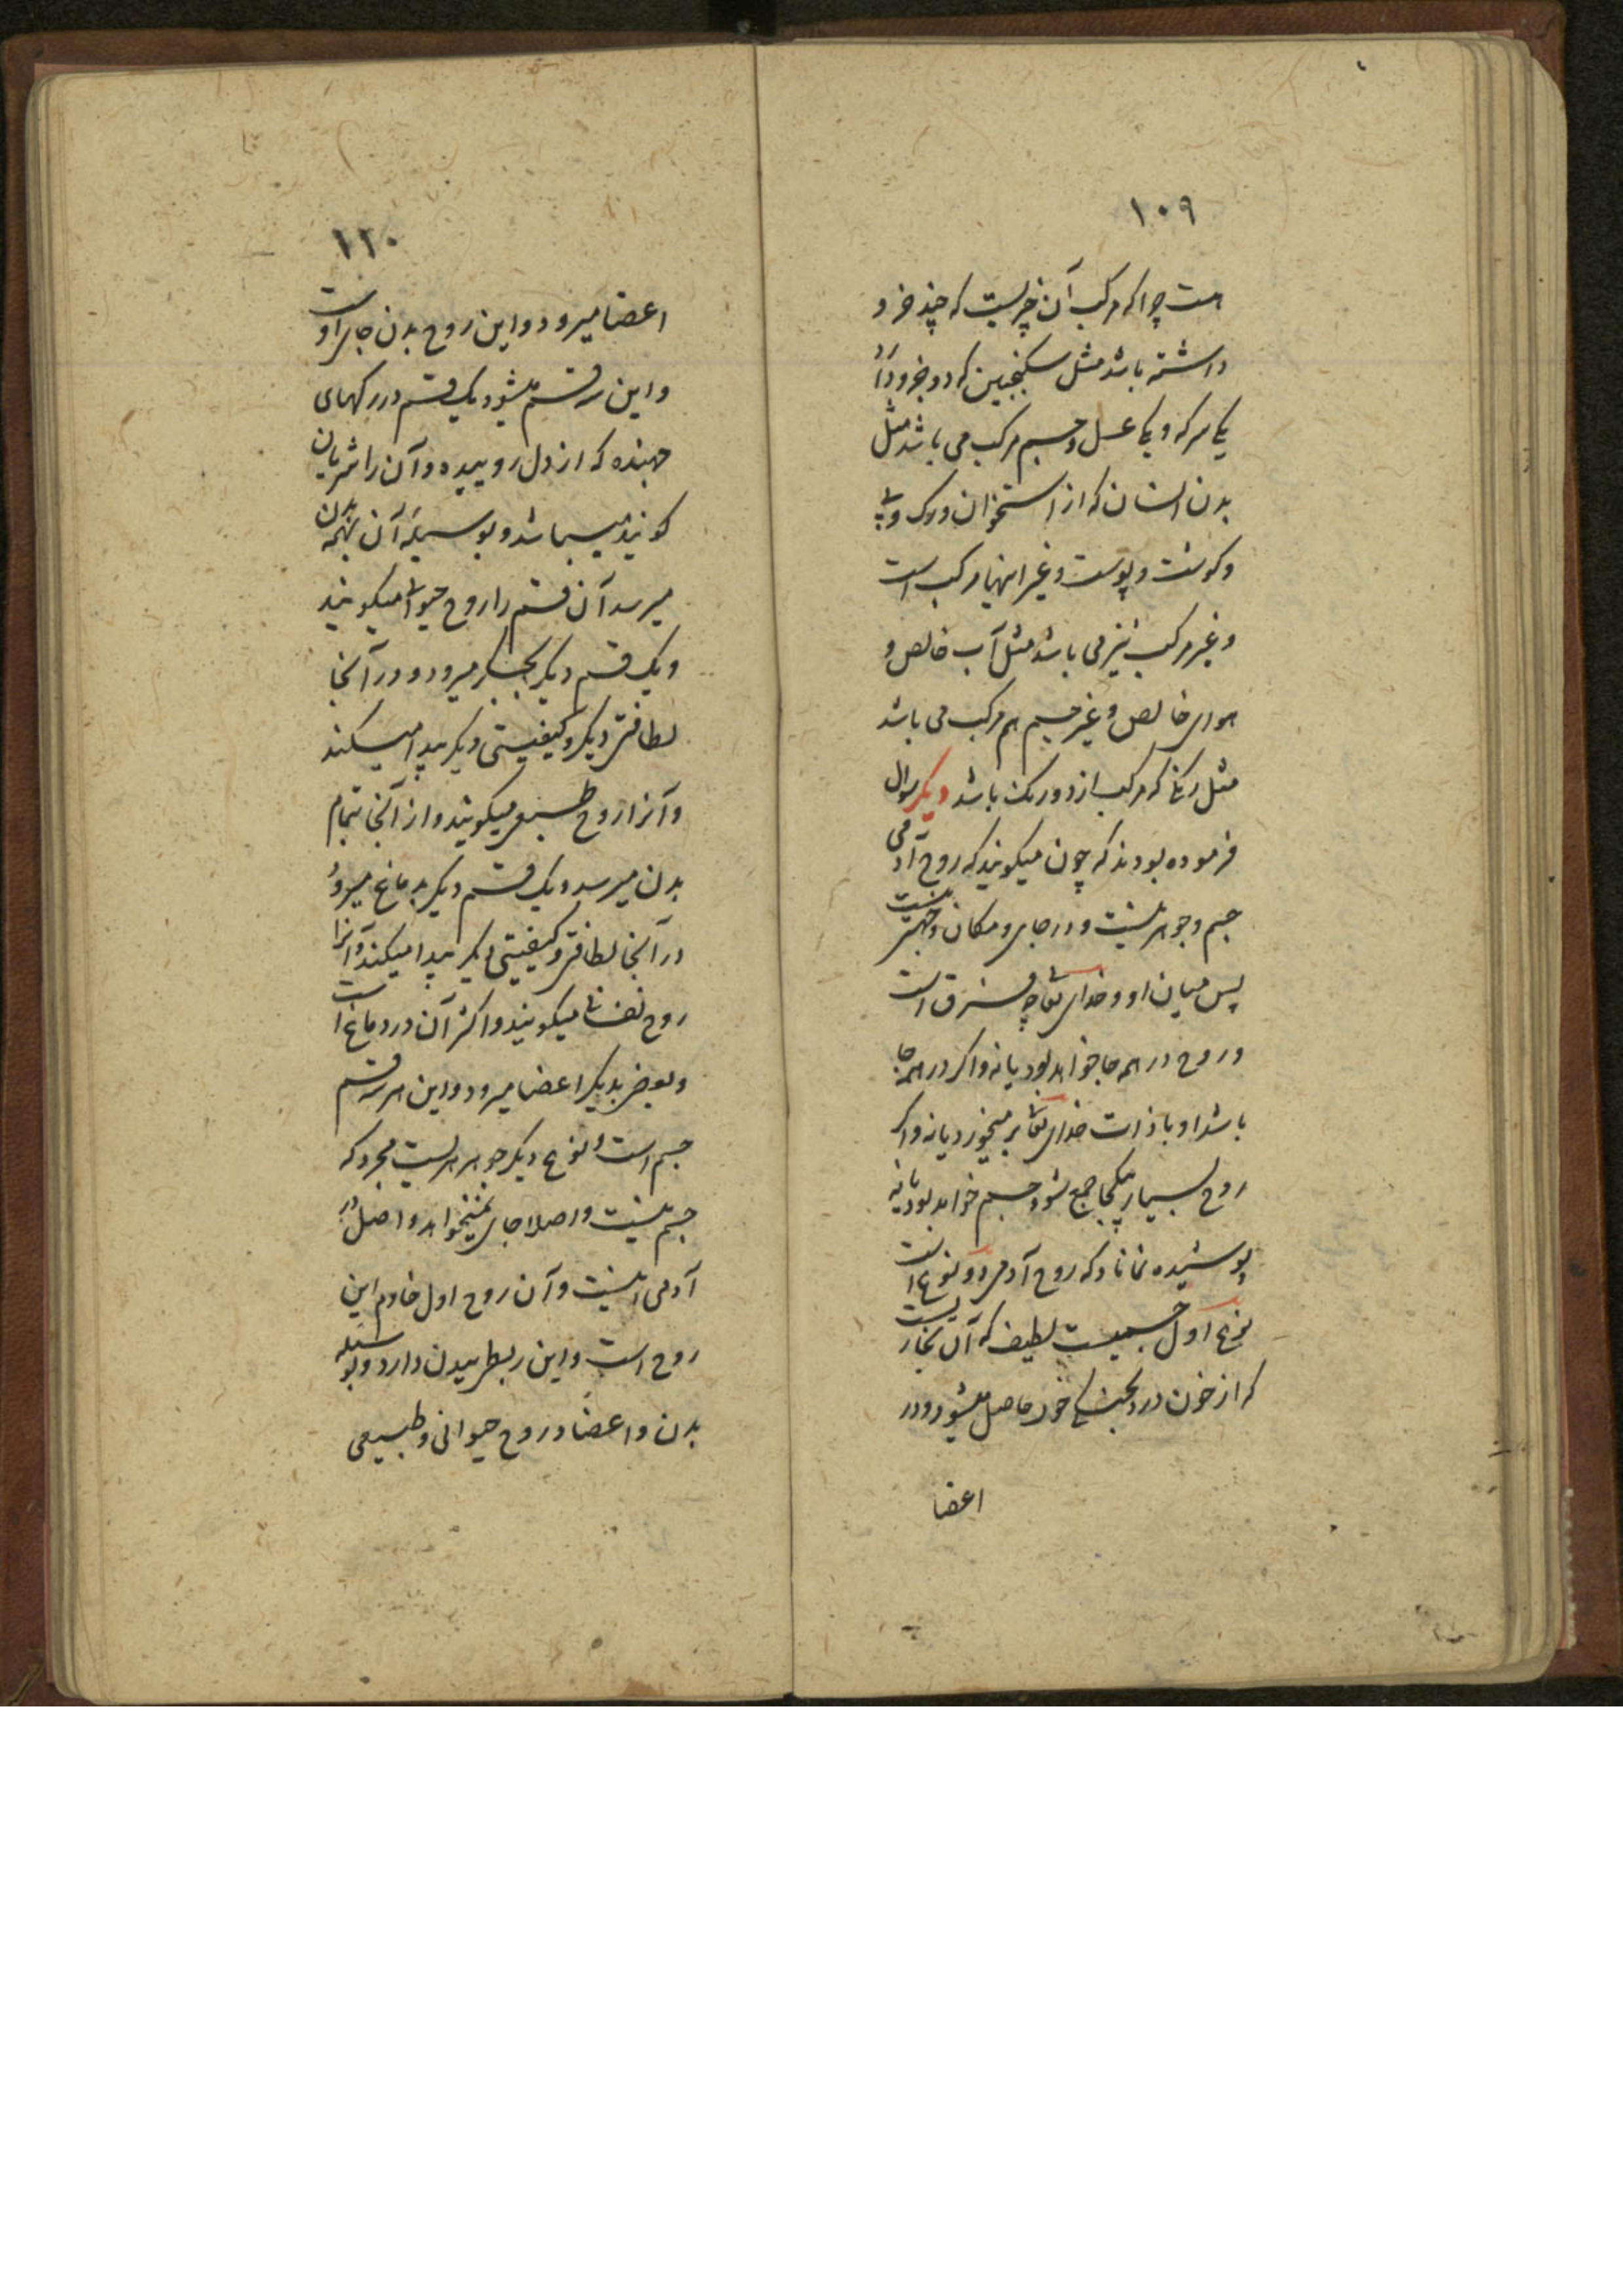 ١٠٩
است چرا که مرکب آن چیزیست که چند جزو
داشته باشد مثل سکنجبین که دو جزو دارد
یکی سرکه و یکی عسل و جسم مرکب می باشد مثل
بدن انسان که از استخوان و رک و پی
و کوشت و پوست و غیر اینها مرکب است
و غیر مرکب نیز می باشد مثل آب خالص و
هوای خالص و غیر جسم هم مرکب می باشد
مثل رنکی که مرکب از دو رنک باشد دیکر سوال
فرموده بودند که چون میکویند که روح آدمی
جسم و جوهر نیست و در جای و مکان و جهتی نیست
پس میان او و خدای تعالی چه فرق است
و روح در همه جا خواهد بود یا نه و اکر در همه جا
باشد او با ذات خدای تعالی بر میخورد یا نه و اکر
روح بسیار یکجا جمع شود جسم خواهد بود یا نه
پوشیده نماناد که روح آدمی دو نوع است
نوع اول جسمیست لطیف که آن بخاریست
که از خون در بخش خود حاصل میشود و در
اعضا
١١٠
اعضا میرود و این روح بدن جای اوست
و این سه قسم میشود یک قسم در رکهای
جهنده که از دل روییده و آن را شریان
کویند میباشد و بوسیلهٔ آن بهمه بدن
میرسد آن قسم را روح حیوانی میکویند
و یک قسم دیکر بجکر میرود و در آنجا
لطافتی دیکر و کیفیتی دیکر پیدا میکند
و آنرا روح طبیعی میکویند و از آنجا بتمام
بدن میرسد و یک قسم دیکر بدماغ میرود
در آنجا لطافتی و کیفیتی دیکر پیدا میکند و آنرا
روح نفسانی میکویند و اکثر آن در دماغ است
و بعضی بدیکر اعضا میرود و این هر سه قسم
جسم است و نوع دیکر جوهریست مجرد که
جسم نیست و اصلا جای نمیخواهد و اصل در
آدمی اینست و آن روح اول خادم این
روح است و این ربط ببدن دارد و بوسیله
بدن و اعضا و روح حیوانی و طبیعی